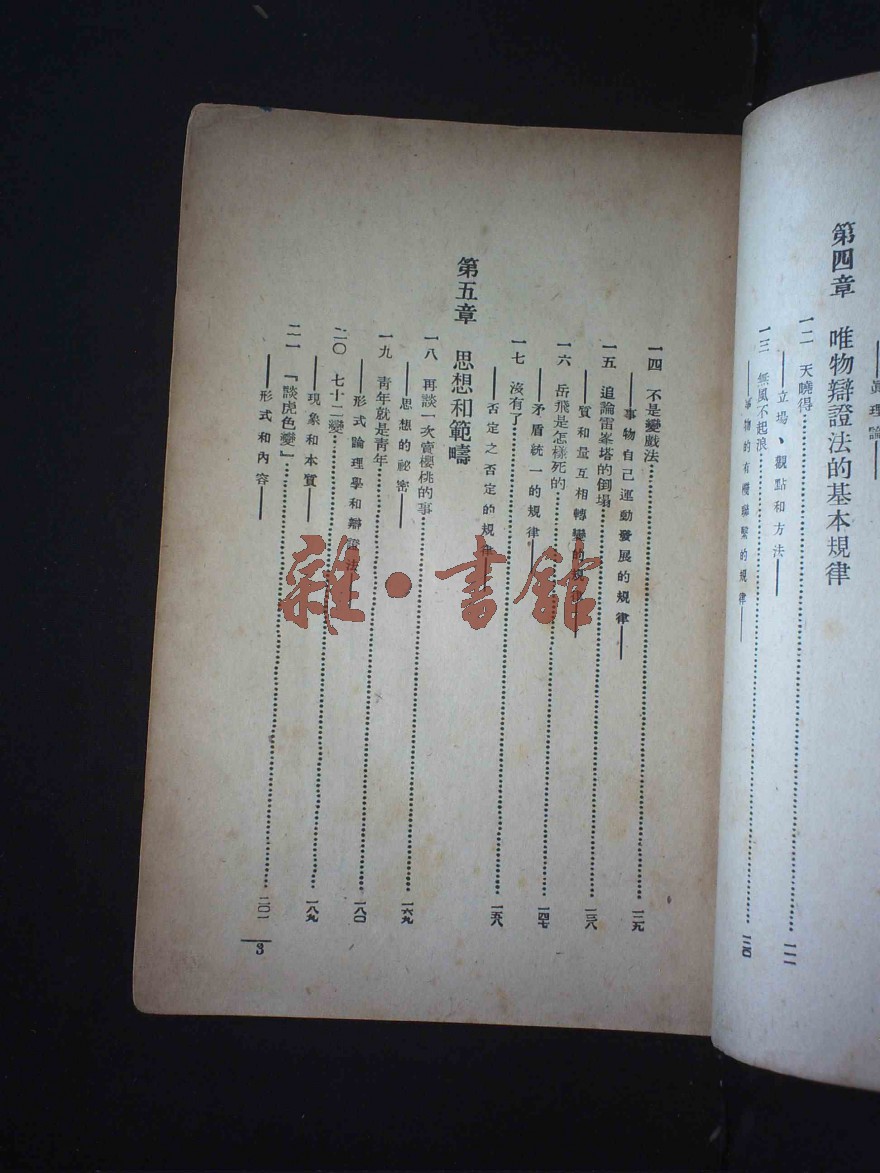 眞理論——
第四章　唯物辯證法的基本規律
一二　天曉得……一一一
——立場、觀點和方法——
一三　無風不起浪……一二〇
——事物的有機聯繫的規律——
一四　不是變戲法……一二九
——事物自己運動發展的規律——
一五　追論雷峯塔的倒塌……一三八
——質和量互相轉變的規律——
一六　岳飛是怎樣死的……一四七
——矛盾統一的規律——
一七　沒有了……一五八
——否定之否定的規律——
第五章　思想和範疇
一八　再談一次賣櫻桃的事……一六九
——思想的祕密——
一九　青年就是青年……一八〇
——形式論理學和辯證法——
二〇　七十二變……一八九
——現象和本質——
二一　「談虎色變」……二〇一
——形式和內容——
3
雜·書館